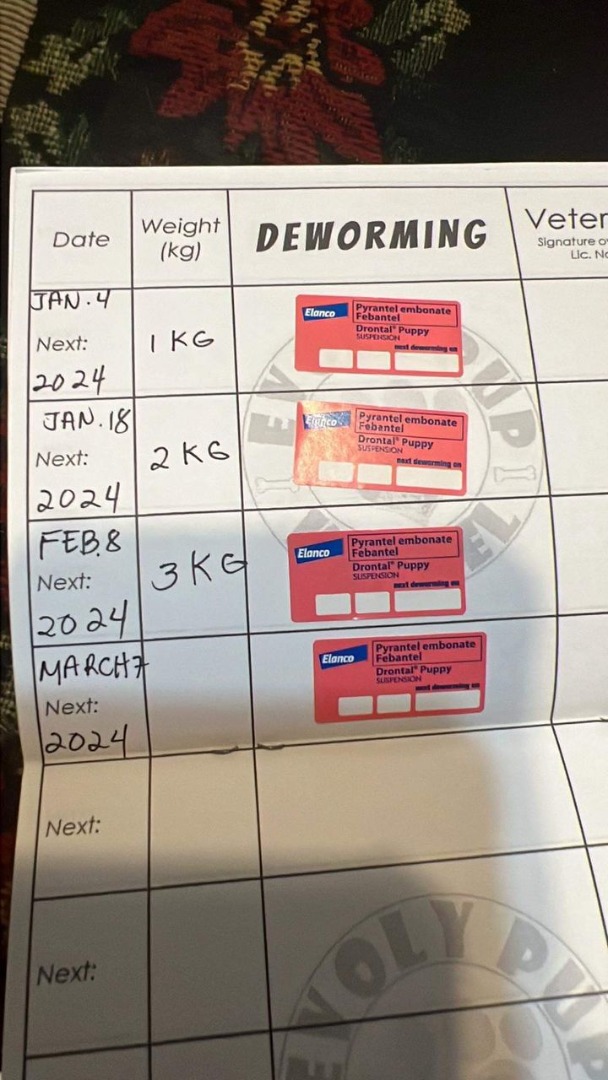 Date
Weight
(kg)
DEWORMING
Veter
Signature o
Lic. No
JAN. 4
Next:
2024
1 KG
Elanco
Pyrantel embonate
Febantel
Drontal® Puppy
SUSPENSION
next deworming on
JAN. 18
Next:
2024
2 KG
Elanco
Pyrantel embonate
Febantel
Drontal® Puppy
SUSPENSION
next deworming on
FEB.8
Next:
2024
3 KG
Elanco
Pyrantel embonate
Febantel
Drontal® Puppy
SUSPENSION
next deworming on
MARCH 7
Next:
2024
Elanco
Pyrantel embonate
Febantel
Drontal® Puppy
SUSPENSION
next deworming on
Next:
Next:
EVOLY PUP